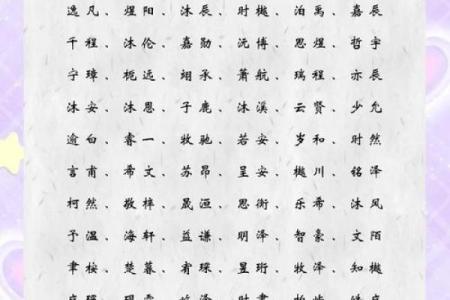 逸凡、煜阳、沐辰、时樾、泊禹、嘉辰
千程、沐伦、嘉勋、沈博、思煜、哲宇
宁璋、栀远、翊承、萧航、瑞程、亦辰
沐安、沐恩、子鹿、沐溪、云贤、少允
逾白、睿一、牧驰、若安、岁和、时然
言甫、希文、苏昂、呈安、樾川、铭泽
柯然、敬梓、晟洹、思衡、乐希、沐风
予温、海轩、益谦、明泽、智豪、文陌
聿桉、楚暮、宥琛、昱珩、牧泽、知樾